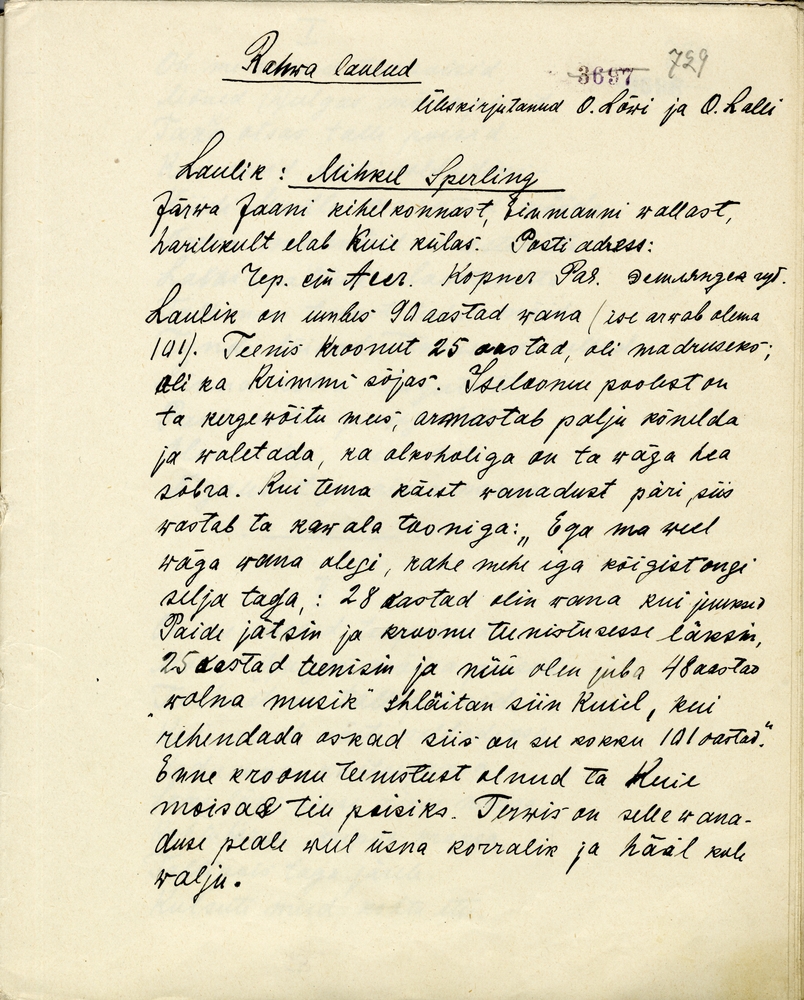 Rahwa laulud
3697 729
Üleskirjutanud O. Lõwi ja O. Lalli
Laulik : Mihkel Sperling
Järwa Jaani kihelkonnast, Einmanni wallast,
harilikult elab Kuie külas. Posti adress:
Laulik on umbes 90 aastad wana (ise arwab olema
101). Teenis kroonut 25 aastad, oli madruseks;
oli ka Krimmi sõjas. Iseloomu poolest on
ta kergewõitu mees, armastab palju kõnelda
ja waletada, ka alkoholiga on ta wäga hea
sõbra. Kui tema käest wanadust päri, siis
wastab ta kawala tooniga: „Ega ma weel
wäga wana olegi, kahe mehe iga kõigist ongi
selja taga, : 28 aastad olin wana kui juuksed
Paide jätsin ja kroonu teenistusesse läksin,
25 aastad teenisin ja nüü olen juba 48 aastad
"wolna musik" ehläitan siin Kuiel, kui
rehendada oskad siis on see kokku 101 aastad."
Enne kroonu teenistust olnud ta Kuie
moisas tiu poisiks. Terwis on selle wana-
duse peale weel üsna korralik ja hääl kole
walju.